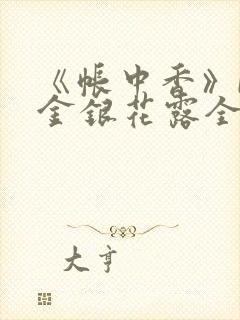 《帐中香》
金银花露全
大亨